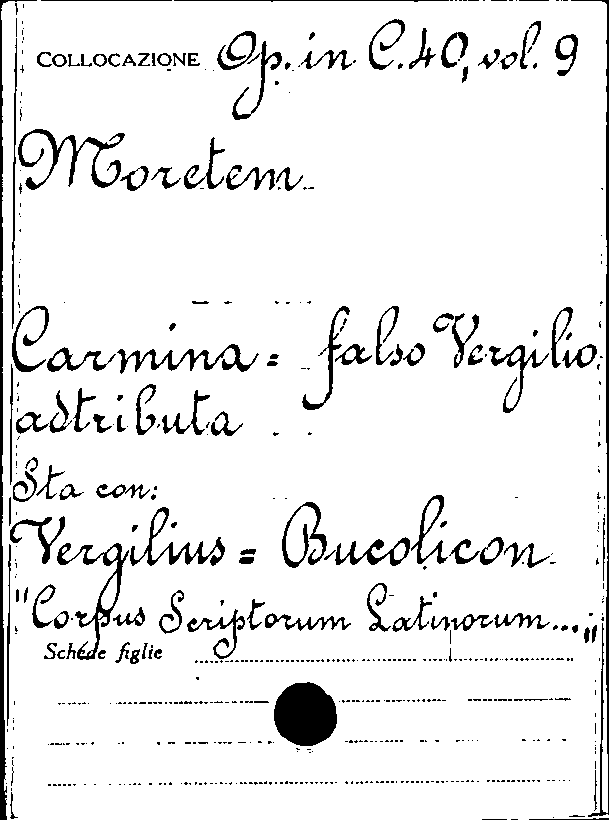 COLLOCAZIONE Op. in C. 40, vol. 9
Moretem
Carmina = falso Vergilio
adtributa
Sta con:
Vergilius = Bucolicon
"Corpus Scriptorum Latinorum...„
Schede figlie